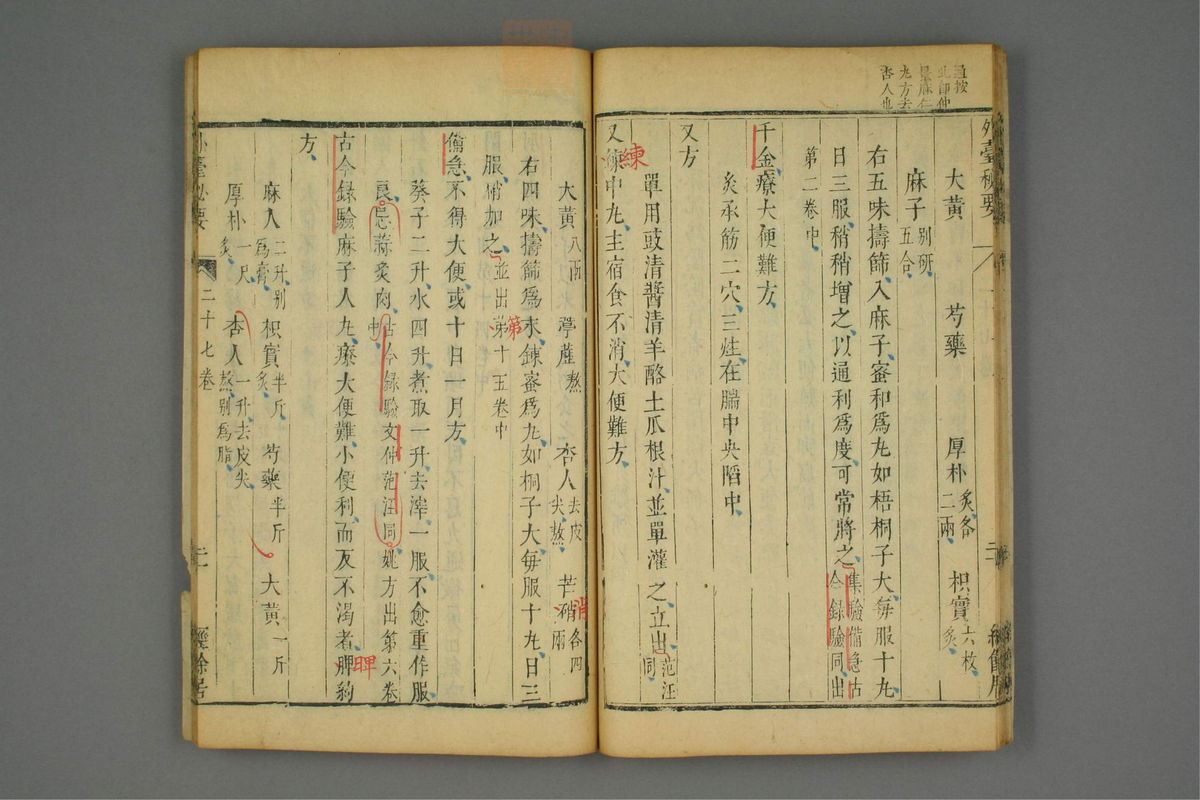 衍按
此即仲
景麻仁
丸方去
杏人也
外臺秘要
大黃 芍藥 厚朴炙各二兩 枳實六枚炙
麻子別研五合
右五味擣篩入麻子蜜和為丸如梧桐子大每服十丸
日三服稍稍增之以通利為度可常將之集驗備急古今錄驗同出
第二卷中
千金療大便難方
灸承筋二穴三炷在腨中央陷中
又方
單用豉清醬清羊酪土瓜根汁並單灌之立出范汪同
又練中丸主宿食不消大便難方
練
大黃八兩 葶藶熬 杏人去皮尖熬 芒硝各四兩
消
右四味擣篩為末鍊蜜為丸如桐子大每服十丸日三
服稍加之並出第十五卷中
第
備急不得大便或十日一月方
葵子二升水四升煮取一升去滓一服不愈重作服
良忌蒜炙肉古今錄驗文仲范汪同姚方出第六卷中
古今錄驗麻子人丸療大便難小便利而反不渴者脾約
脾
方
麻人二升別為膏 枳實半斤炙 芍藥半斤 大黃一斤
厚朴一尺炙 杏人一升去皮尖熬別為脂
外臺秘要 二十七卷 二 經餘居